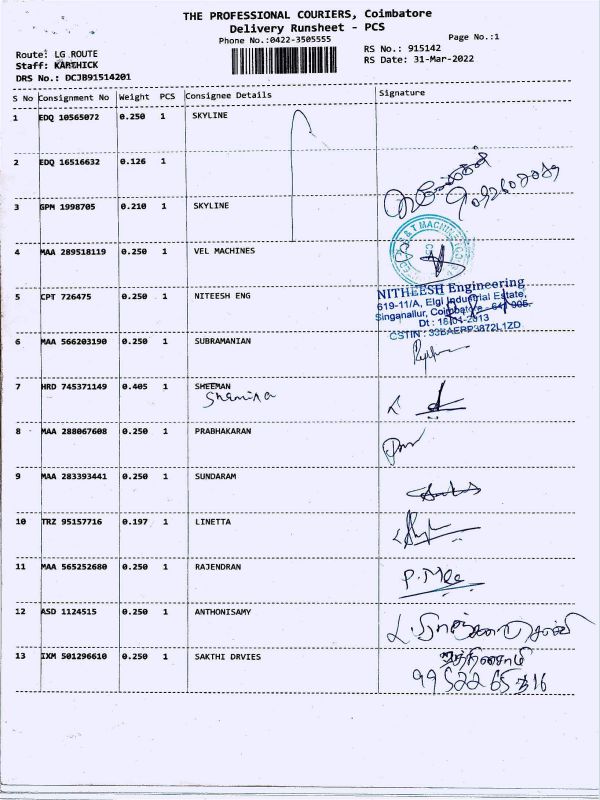 THE PROFESSIONAL COURIERS, Coimbatore
Delivery Runsheet - PCS
Phone No.:0422-3505555
Page No.:1
Route: LG ROUTE
RS No.: 915142
Staff: KARTHICK
RS Date: 31-Mar-2022
DRS No.: DCJB91514201
S No Consignment No Weight PCS Consignee Details Signature
1 EDQ 10565072 0.250 1 SKYLINE
2 EDQ 16516632 0.126 1
3 GPM 1998705 0.210 1 SKYLINE
4 MAA 289518119 0.250 1 VEL MACHINES
5 CPT 726475 0.250 1 NITEESH ENG
NITHEESH Engineering
619-11/A, Elgi Industrial Estate,
Singanallur, Coimbatore - 641 005.
6 MAA 566203190 0.250 1 SUBRAMANIAN
7 HRD 745371149 0.405 1 SHEEMAN
Shamina
8 MAA 288067608 0.250 1 PRABHAKARAN
9 MAA 283393441 0.250 1 SUNDARAM
10 TRZ 95157716 0.197 1 LINETTA
11 MAA 565252680 0.250 1 RAJENDRAN
12 ASD 1124515 0.250 1 ANTHONISAMY
13 IXM 501296610 0.250 1 SAKTHI DRVIES